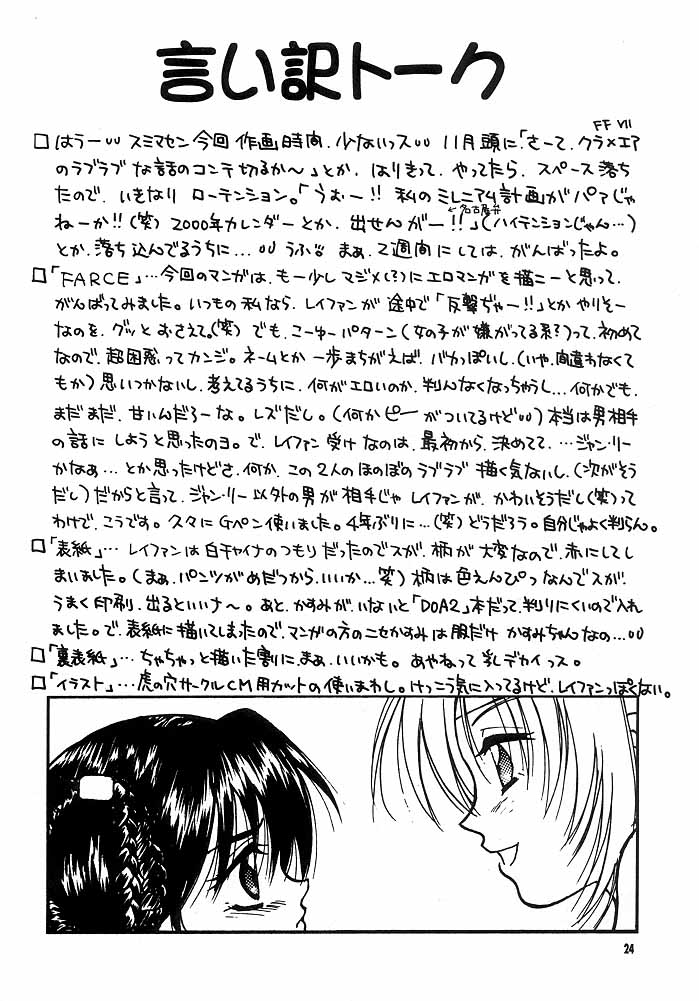 言い訳トーク
FF VII
□はうー〵〵スミマセン今回作画時間、少ないっス〵〵 11月頭に「さーて、クラ×エア
のラブラブな話のコンテ切るか〜」とか、はりきって、やってたら、スペース落ち
たので、いきなりローテンション。「うおー!!私のミレニアム計画がパアじゃ
←名古屋弁
ねーか!!(笑)2000年カレンダーとか、出せんがー!!」(ハイテンションじゃん…)
とか、落ち込んでるうちに…〵〵うふ まぁ、2週間にしては、がんばったよ。
□「FARCE」…今回のマンガは、もー少しマジメ(?)にエロマンガを描こーと思って、
がんばってみました。いつもの私なら、レイファンが途中で「反撃ぢゃー!!」とかやりそー
なのを、グッとおさえて。(笑)でも、こーゆーパターン(女の子が嫌がってる系?)って、初めて
なので、超困惑ってカンジ。ネームとか一歩まちがえば、バカっぽいし、(いや、間違わなくて
もか)思いつかないし、考えてるうちに、何がエロいのか、判んなくなっちゃうし…何かでも、
まだまだ、甘いんだろーな。レズだし。(何かピーがついてるけど〵〵)本当は男相手
の話にしようと思ったのヨ。で、レイファン受けなのは、最初から、決めてて、…ジャン・リー
かなぁ…とか思ったけどさ、何か、この2人のほのぼのラブラブ描く気ないし、(次がそう
だし)だからと言って、ジャン・リー以外の男が相手じゃレイファンが、かわいそうだし(笑)って
わけで、こうです。久々にGペン使いました。4年ぶりに…(笑)どうだろう。自分じゃよく判らん。
□「表紙」…レイファンは白チャイナのつもりだったのでスが、柄が大変なので、赤にしてし
まいました。(まぁ、パンツがめだつから、いいか…笑)柄は色えんぴつなんでスが、
うまく印刷、出るといいナ〜。あと、かすみがいないと「DOA2」本だって、判りにくいので入れ
ました。で、表紙に描いてしまったので、マンガの方のニセかすみは服だけかすみちゃんなの…〵〵
□「裏表紙」…ちゃちゃっと描いた割に、まぁ、いいかも。あやねって乳デカイっス。
□「イラスト」…虎の穴サークルCM用カットの使いまわし。けっこう気に入ってるけど、レイファンっぽくない。
24